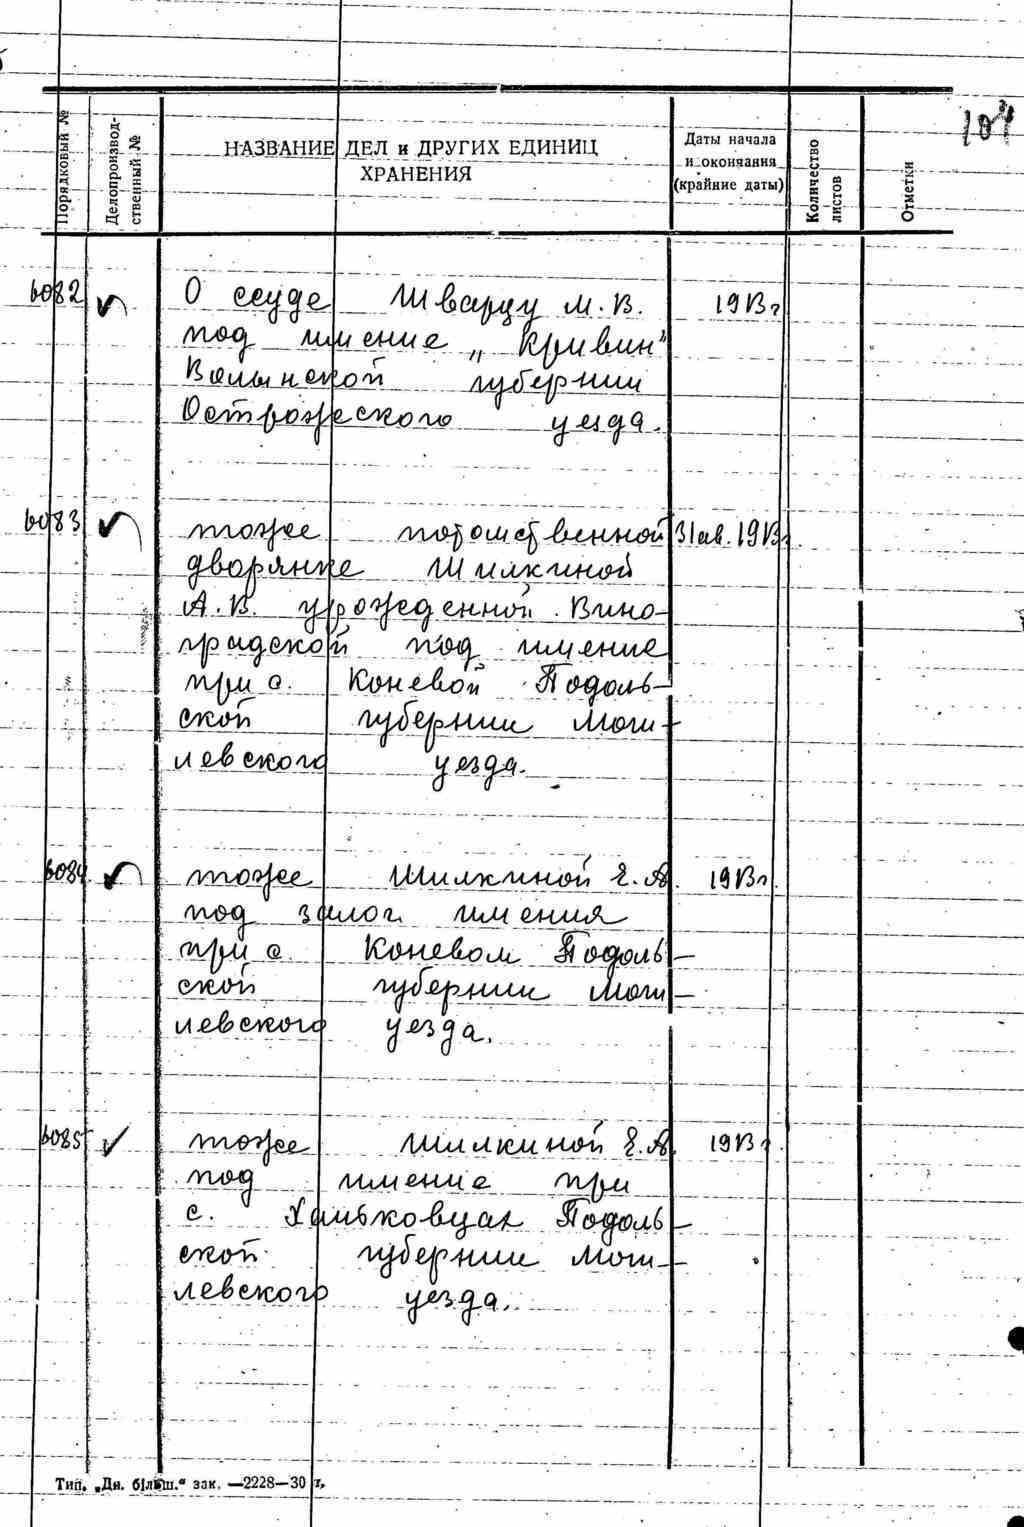 107
Порядковый №
Делопроизвод-
ственный №
НАЗВАНИЕ ДЕЛ и ДРУГИХ ЕДИНИЦ
ХРАНЕНИЯ
Даты начала
и окончания
(крайние даты)
Количество
листов
Отметки
6082 О ссуде Шварцу М. В. 1913 г
под имение „Кривин"
Волынской губернии
Острожеского уезда.
6083 тоже потомственной 31 ав. 1913 г.
дворянке Шилкиной
А. В. урожденной Вино-
градской под имение
при с. Коневой Подоль-
ской губернии Моги-
левского уезда.
6084 тоже Шилкиной Е. А. 1913 г.
под залог имения
при с. Коневом Подоль-
ской губернии Моги-
левского уезда.
6085 тоже Шилкиной Е. А. 1913 г.
под имение при
с. Хоньковцах Подоль-
ской губернии Моги-
левского уезда.
Тип. „Дн. більш." зак. —2228—30 г.